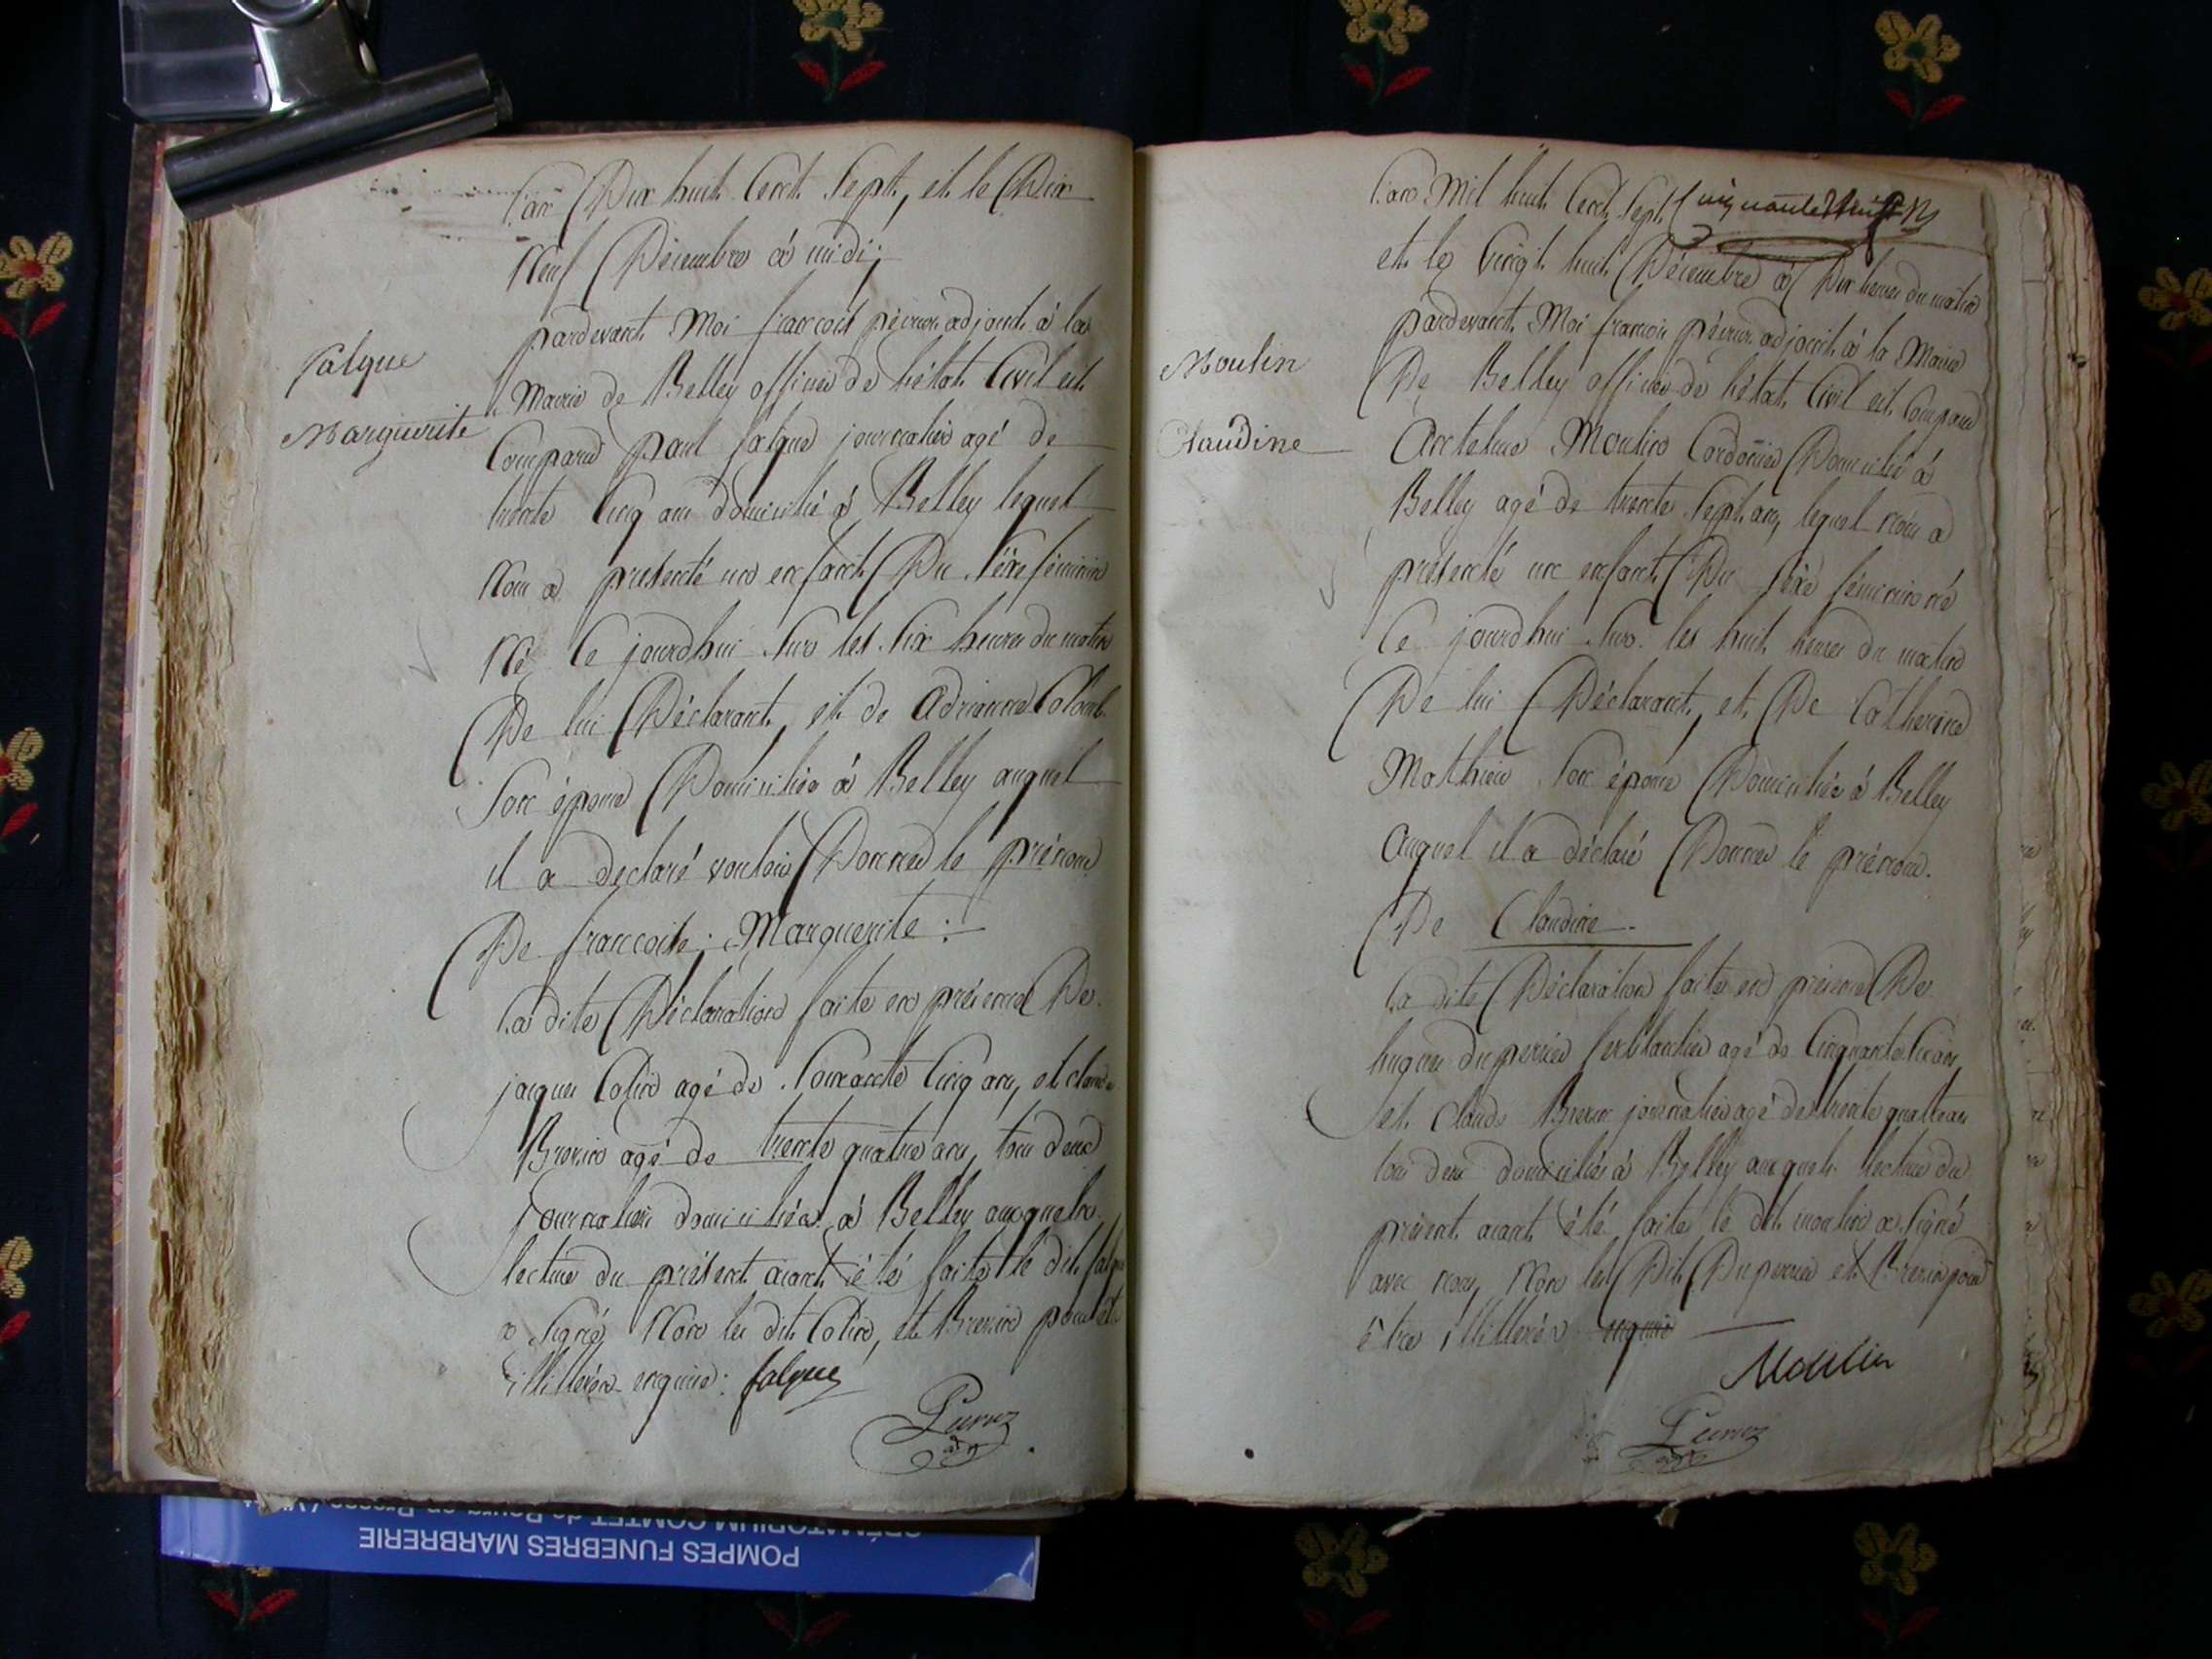 L'an Dix huit Cent Sept, et le Dix
Neuf Décembre à midi;
pardevant Moi francois péruz adjoint à la
falque
Marguerite
Mairie de Belley officier de l'état Civil est
Comparu paul falque journalier agé de
trente Cinq ans domicilié à Belley lequel
Nous a presenté un enfant Du Séxe féminin
Né Ce jourdhui Sur les Six heures du matin
De lui Déclarant, et de Adrianne Colomb
Son épouse Domiciliée à Belley auquel
il a declaré vouloir Donner le prénom
De francoise; Marguerite:
La dite Déclaration faite en présence De
jacques Colin agé de Soixante Cinq ans, et claude
Brenin agé de trente quatre ans, tous deux
journaliers domiciliés à Belley auxquels
lecture du présent aiant été faite le dit falque
a Signé Non les dits Colin, et Brenin pour être
illitérés enquis: falque
Peruz
adj
L'an Mil huit Cent Sept
et le Vingt huit Décembre à Dix heures du matin
pardevant Moi francois péruz adjoint à la Mairie
Moulin
Claudine
De Belley officier de l'état Civil est Comparu
Anthelme Moulin Cordonier Domicilié à
Belley agé de trente Sept ans, lequel nous a
présenté un enfant Du Séxe féminin né
Ce jourdhui Sur les huit heures du matin
De lui Déclarant, et De Catherine
Mathieu Son épouse Domiciliée à Belley
Auquel il a déclaré Donner le prénom
De Claudine
La dite Déclaration faite en présence De
hugues duperrier ferblantier agé de Cinquante ans
et Claude Brenin journalier agé de trente quatre ans
tous deux domiciliés à Belley auxquels lecture du
présent aiant été faite le dit moulin a Signé
avec nous, Non les Dits Duperrier et Brenin pour
être illitérés enquis
Moulin
Peruz
adj
POMPES FUNEBRES MARBRERIE
CRÉMATORIUM COMTET de Bourg-en-Bresse